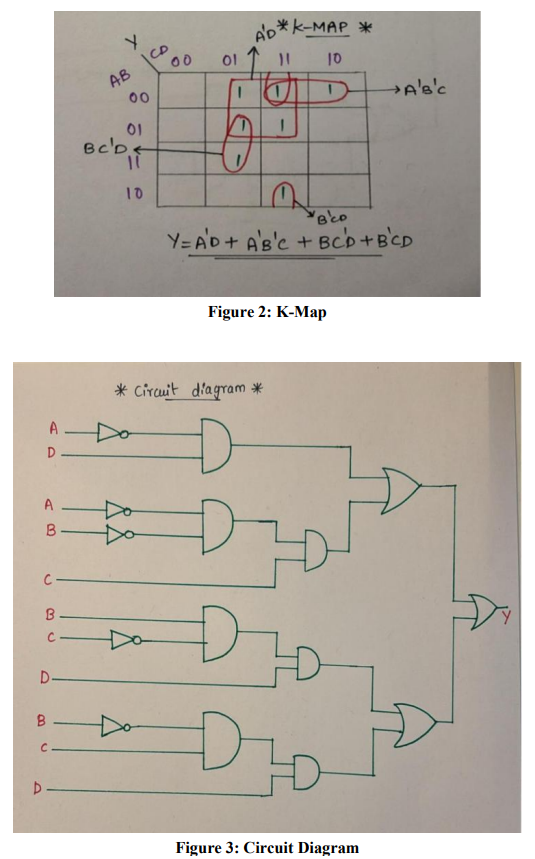 A'D * K-MAP *
Y
CD 00 01 11 10
AB
00 1 1 1 A'B'C
01 1 1
BC'D
11 1
10 1
B'CD
Y = A'D + A'B'C + BC'D + B'CD
Figure 2: K-Map
* Circuit diagram *
A
D
A
B
C
B
C
Y
D
B
C
D
Figure 3: Circuit Diagram